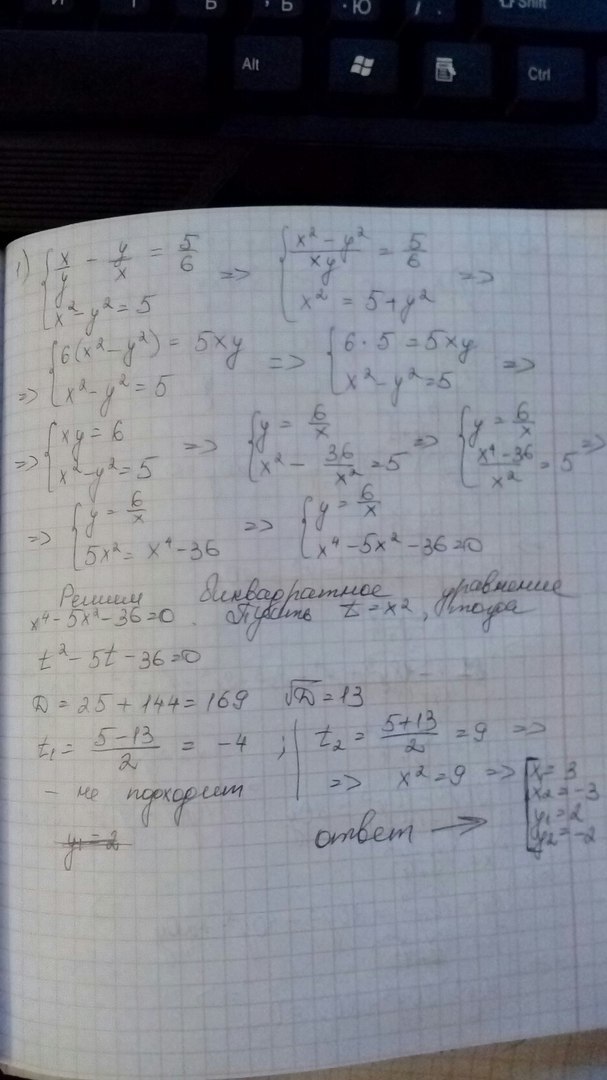 Alt
Ctrl
Shift
1) { x/y - y/x = 5/6 => { (x² - y²)/xy = 5/6 =>
x² - y² = 5 x² = 5 + y²
=> { 6(x² - y²) = 5xy => { 6·5 = 5xy =>
x² - y² = 5 x² - y² = 5
=> { xy = 6 => { y = 6/x => { y = 6/x =>
x² - y² = 5 x² - 36/x² = 5 (x⁴ - 36)/x² = 5
=> { y = 6/x => { y = 6/x
5x² = x⁴ - 36 x⁴ - 5x² - 36 = 0
Решим биквадратное уравнение
x⁴ - 5x² - 36 = 0. Пусть t = x2, тогда
t² - 5t - 36 = 0
D = 25 + 144 = 169 √D = 13
t₁ = (5 - 13)/2 = -4 ; | t₂ = (5 + 13)/2 = 9 =>
- не подходит => x² = 9 => [ x₁ = 3
x₂ = -3
y₁ = 2
y₂ = -2
y₁ = 2 ответ →